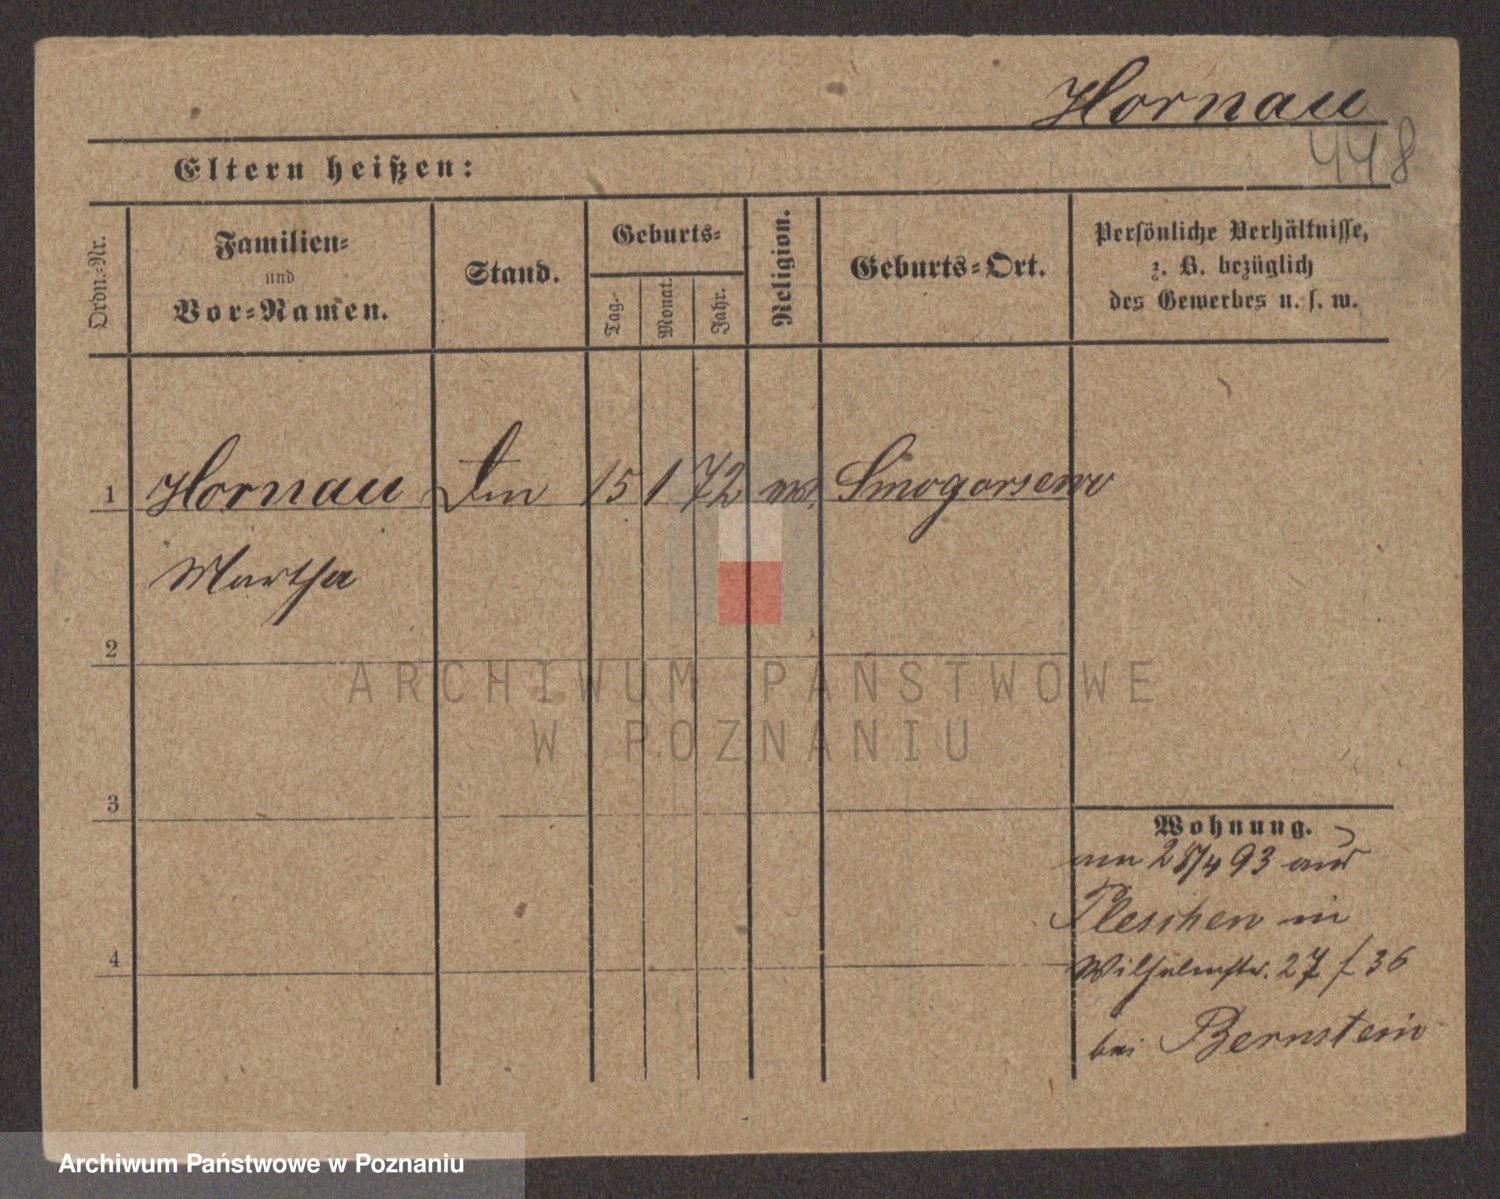 Hornau
448
Eltern heißen:
Ordn.-Nr.
Familien-
und
Vor-Namen.
Stand.
Geburts-
Tag.
Monat.
Jahr.
Religion.
Geburts-Ort.
Persönliche Verhältnisse,
z. B. bezüglich
des Gewerbes u. s. w.
1 Hornau 15 1 72 Smogorsewo
Martha
2
3
4
Wohnung.
am 28/4 93 aus
Pleschen in
Wilhelmstr. 27 / 36
bei Bernstein
ARCHIWUM PAŃSTWOWE
W POZNANIU
Archiwum Państwowe w Poznaniu